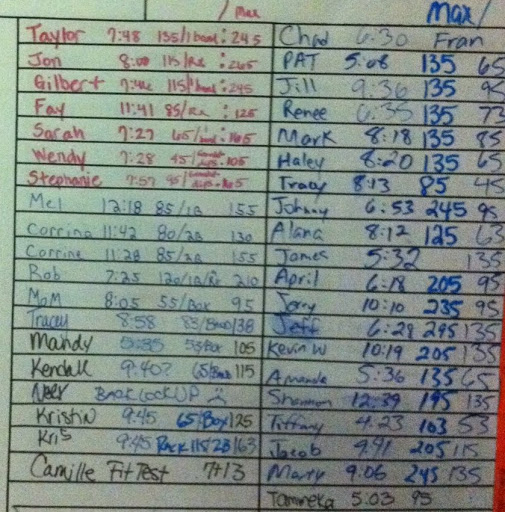 / Max
Max/
Taylor 7:48 135/1 band : 245
Chad 6:30 Fran
Jon 8:00 115/Rx : 265
PAT 5:08 135 65
Gilbert 7:42 115/1 band : 245
Jill 9:36 135 95
Fay 11:41 85/Rx : 125
Renee 6:35 135 73
Sarah 7:27 65/ : 165
Mark 8:18 135 85
Wendy 7:28 45/ 105
Haley 8:20 135 65
Stephanie 7:57
Tracy 8:13 85 45
Mel 12:18 85/1B 155
Johnny 6:53 245 95
Corrina 11:42 80/2B 130
Alana 8:12 125 63
Corrine 11:28 85/2B 155
James 5:32 135
Rob 7:25 120/1B/Rx 210
April 6:18 205 95
MoM 8:05 55/Box 95
Jerry 10:10 235 95
Tracey 8:58 83/Band/138
Jeff 6:28 295 135
Mandy 53/Box 105
Kevin W 10:19 205 135
Kendall 9:40? 65/Band 115
Amanda 5:36 135 65
BACK LOCK UP
Shannon 12:39 195 135
Kristin 9:45 65/Box/125
Tiffany 4:23 103 53
Kris 9:45 Rack 115/2B/163
Jacob 9:41 205 115
Camille Fit Test 7+13
Marty 9:06 245 135
Tameeka 5:03 95